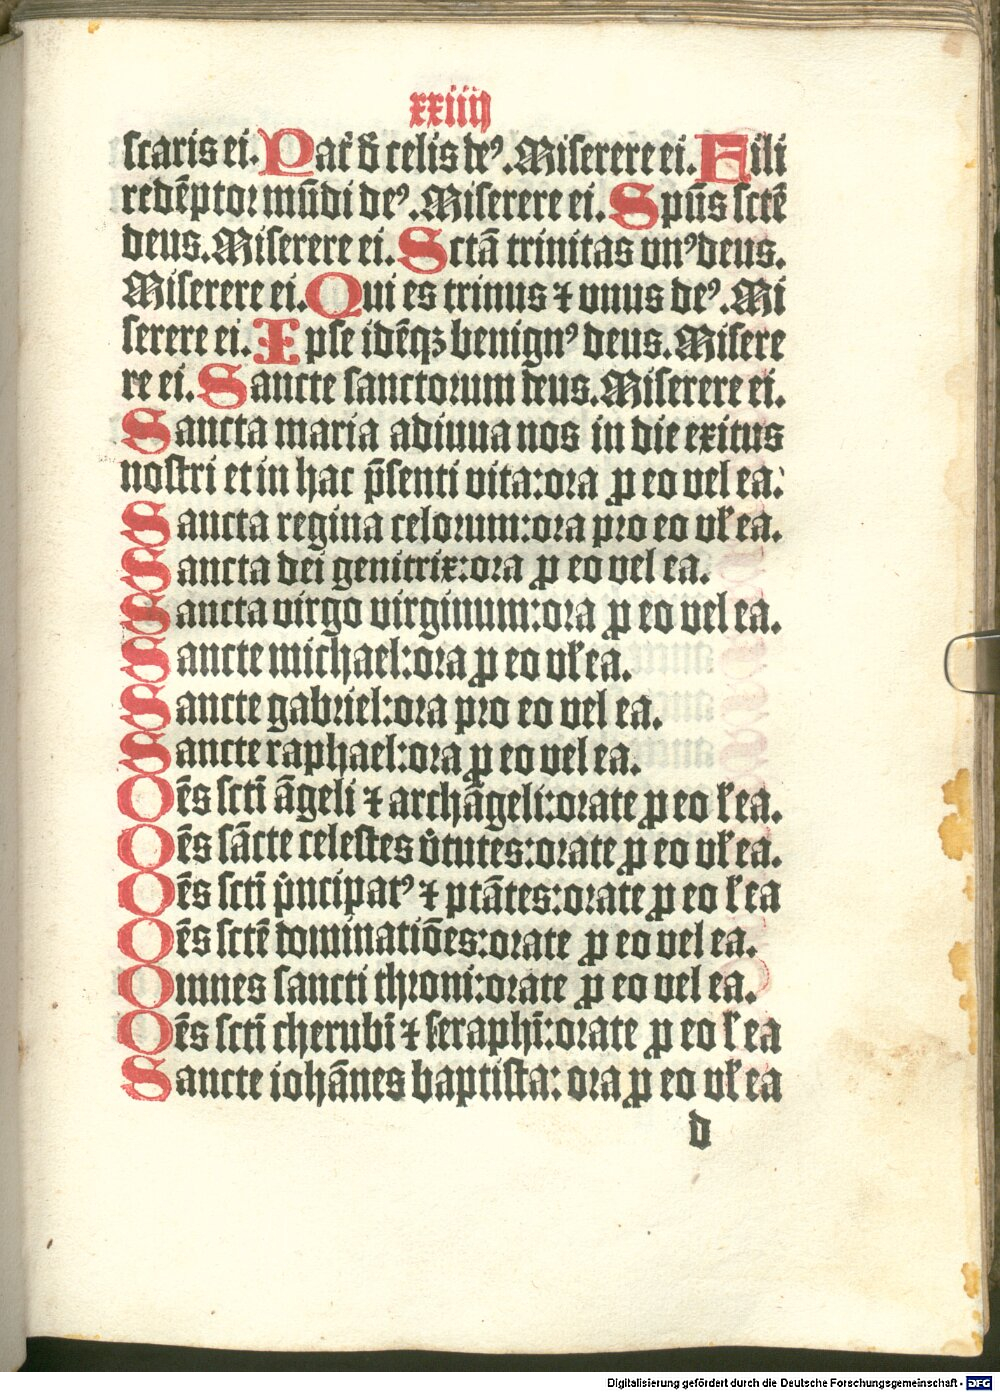 xxiiij
scaris ei. Pat̉ d̄ celis deꝰ. Miserere ei. Fili
redēptoꝛ mūdi deꝰ. Miserere ei. Spūs sctē
deus. Miserere ei. Sctā trinitas vnꝰ deus.
Miserere ei. Qui es trinus ⁊ vnus deꝰ. Mi
serere ei. Ipse idēqꝫ benignꝰ deus. Misere
re ei. Sancte sanctoꝛum deus. Miserere ei.
Sancta maria adiuua nos in die exitus
nostri et in hac p̄senti vita: oꝛa ꝓ eo vel ea:
Sancta regina celoꝛum: oꝛa pro eo vł ea.
Sancta dei genitrix: oꝛa ꝓ eo vel ea.
Sancta virgo virginum: oꝛa ꝓ eo vel ea.
Sancte michael: oꝛa ꝓ eo vł ea.
Sancte gabriel: oꝛa pꝛo eo vel ea.
Sancte raphael: oꝛa ꝓ eo vel ea.
Oēs scti āgeli ⁊ archāgeli: oꝛate ꝓ eo ł ea.
Oēs sācte celestes v̉tutes: oꝛate ꝓ eo vł ea.
Oēs sctī p̉ncipatꝰ ⁊ ptātes: oꝛate ꝓ eo ł ea
Oēs sctē dominatiōes: oꝛate ꝓ eo vel ea.
Omnes sancti throni: oꝛate ꝓ eo vel ea.
Oēs sctī cherubī ⁊ seraphī: oꝛate ꝓ eo ł ea
Sancte iohānes baptista: oꝛa ꝓ eo vł ea
d
Digitalisierung gefördert durch die Deutsche Forschungsgemeinschaft - DFG